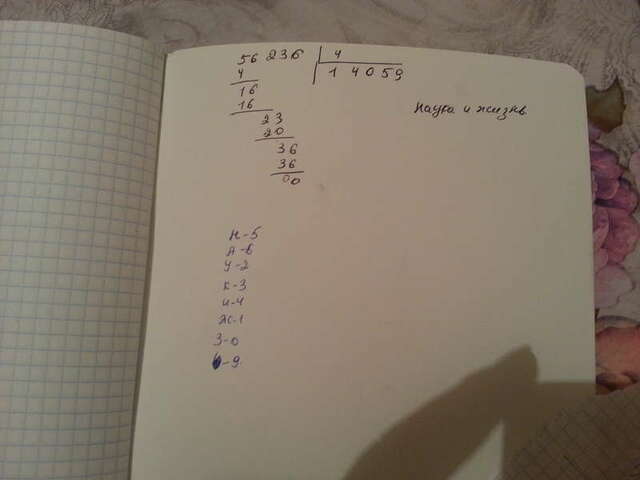 56 236 4
4 14059
16
16
23
20
36
36
00
наука и жизнь
Н-5
А-6
У-2
К-3
И-4
Ж-1
З-0
Ь-9